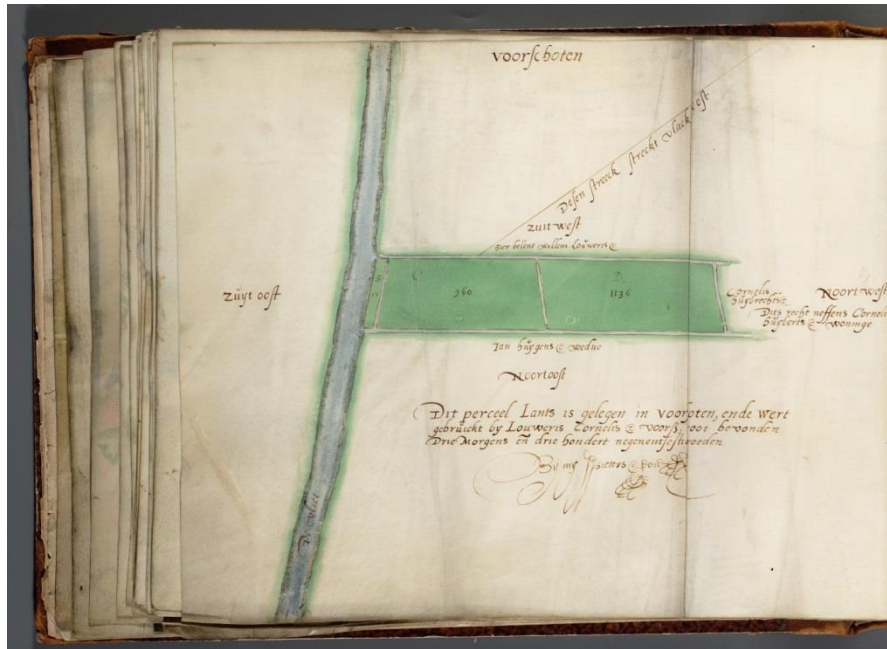 voorschoten
Desen streeck streckt vlack est
zuit west
hier belent willem Louweris
zuyt oost
C
960
D
1136
Cornelis
huijbrechtse
Noort west
Dits recht neffens Corneli
huyberts woninge
Jan huijgens wedue
Noortoost
Dit perceel Lants is gelegen in vooroten, ende wert
gebruickt by Louweris Cornelis voors groot bevonden
Drie Morgens en drie hondert negenentsestichroeden
By my
De vliet